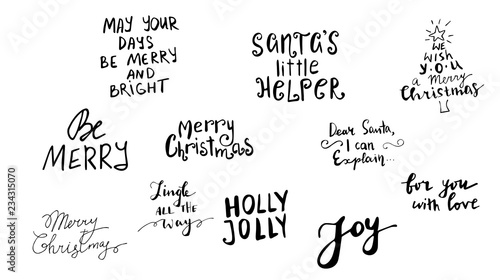 MAY YOUR
DAYS
BE MERRY
AND
BRIGHT
SANTA'S
little
HELPER
WE
WISH
YOU
a Merry
Christmas
Be
MERRY
Merry
Christmas
Dear Santa,
I can
Explain...
Merry
Christmas
Jingle
ALL THE
Way
HOLLY
JOLLY
Joy
for you
with love
Adobe Stock | #234315070